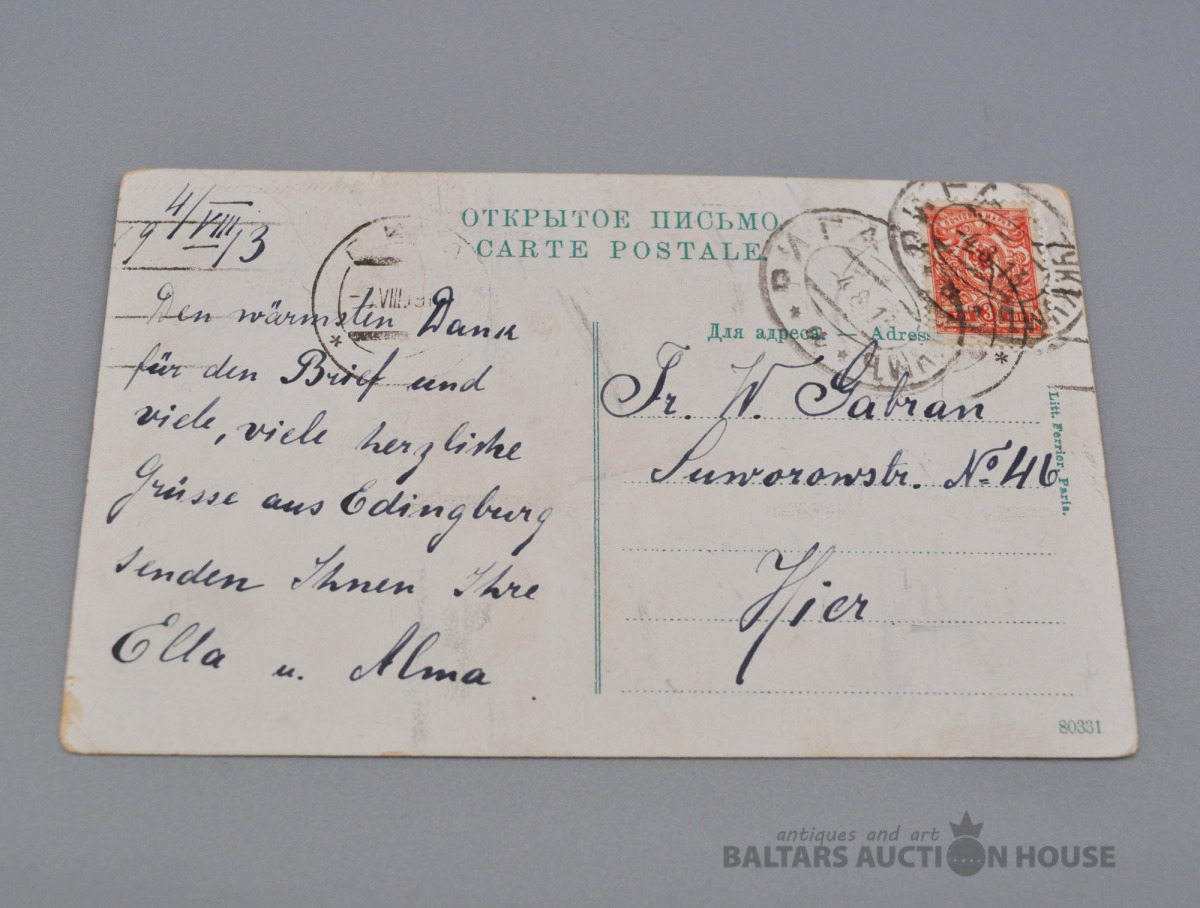 4/VIII
19 13
ОТКРЫТОЕ ПИСЬМО
CARTE POSTALE
Den wärmsten Dank
für den Brief und
viele, viele herzliche
Grüsse aus Edingburg
senden Ihnen Ihre
Ella u. Alma
РИГА
4.8.13
Для адреса. — Adres
Fr. W. Gabran
Suworowstr. № 46
Hier
Litt. Ferrier, Paris.
80331
antiques and art
BALTARS AUCTION HOUSE